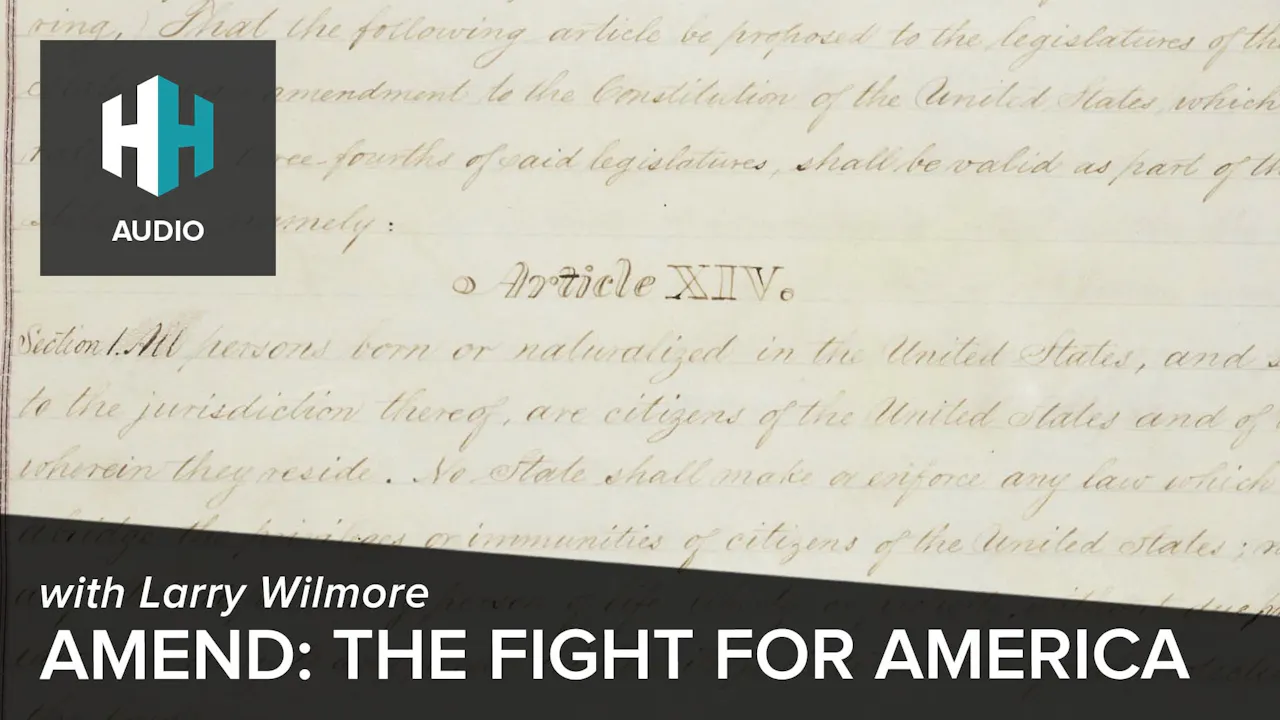 ring, That the following article be proposed to the legislatures of the
amendment to the Constitution of the United States, which
fourths of said legislatures, shall be valid as part of th
namely :
Article XIV.
Section 1. All persons born or naturalized in the United States, and s
to the jurisdiction thereof, are citizens of the United States and of
wherein they reside. No State shall make or enforce any law which
abridge the privileges or immunities of citizens of the United States;
HH
AUDIO
with Larry Wilmore
AMEND: THE FIGHT FOR AMERICA